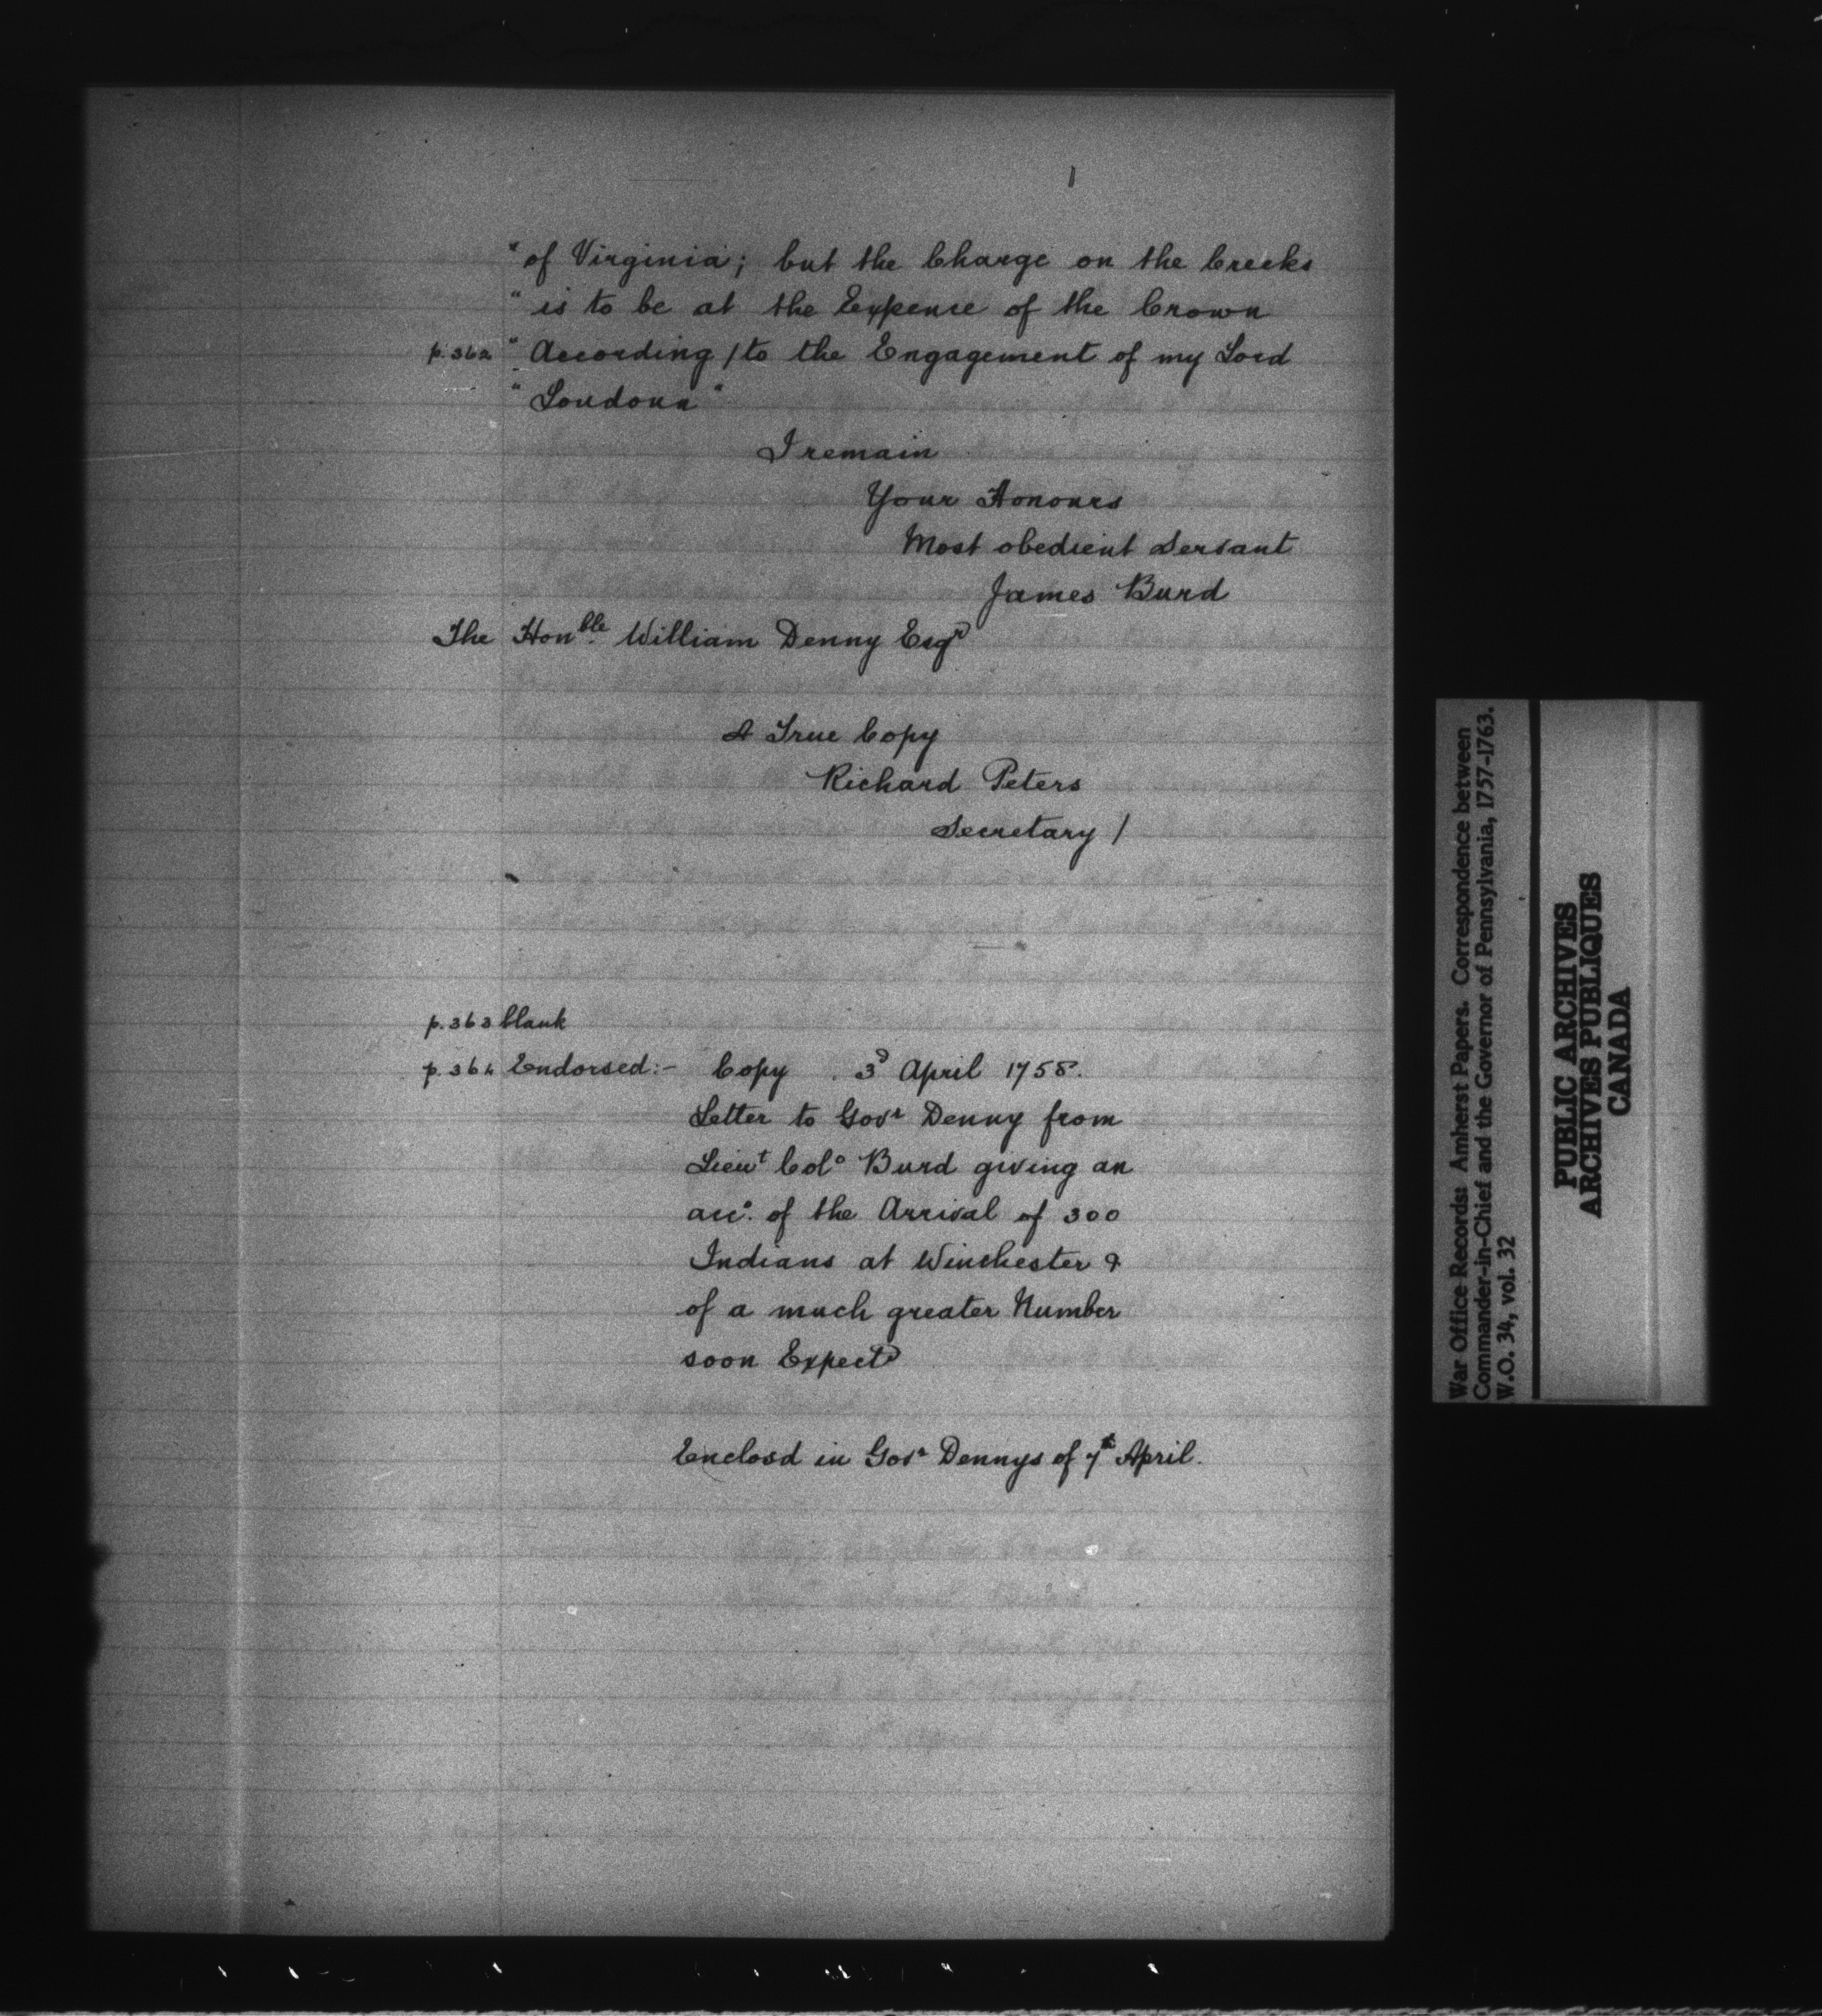 "of Virginia; but the Charge on the Creeks
"is to be at the Expence of the Crown
p. 362 "According / to the Engagement of my Lord
"Loudoun"
I remain
Your Honours
Most obedient Servant
James Burd
The Honble. William Denny Esqr
A True Copy
Richard Peters
Secretary /
p. 363 blank
p. 364 Endorsed:- Copy . 3d April 1758.
Letter to Govr Denny from
Lieut Colo Burd giving an
acco. of the Arrival of 300
Indians at Winchester &
of a much greater Number
soon Expectd
Enclosd in Govr Dennys of 7th April.
War Office Records: Amherst Papers. Correspondence between
Commander-in-Chief and the Governor of Pennsylvania, 1757-1763.
W.O. 34, vol. 32
PUBLIC ARCHIVES
ARCHIVES PUBLIQUES
CANADA